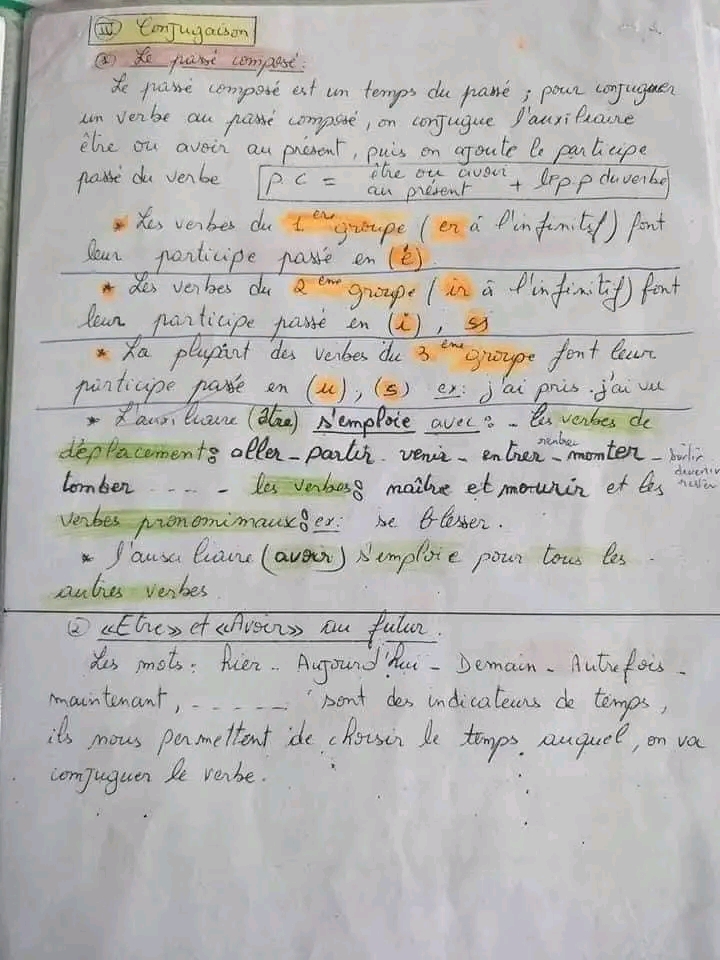 IV Conjugaison
① Le passé composé:
Le passé composé est un temps du passé ; pour conjuguer
un verbe au passé composé, on conjugue l'auxiliaire
être ou avoir au présent, puis on ajoute le participe
passé du verbe p.c = être ou avoir au présent + le p.p du verbe
* Les verbes du 1er groupe (er à l'infinitif) font
leur participe passé en (é)
* Les verbes du 2ème groupe (ir à l'infinitif) font
leur participe passé en (i),
* La plupart des verbes du 3ème groupe font leur
participe passé en (u), (s) ex: j'ai pris. j'ai vu
* L'auxiliaire (être) s'emploie avec: - les verbes de
déplacement: aller - partir - venir - entrer - rentrer - monter - sortir
tomber ---- - les verbes: naître et mourir et les devenir rester
verbes pronominaux: ex: se blesser.
* l'auxiliaire (avoir) s'emploie pour tous les
autres verbes
② «Etre» et «Avoir» au futur.
Les mots: hier - Aujourd'hui - Demain - Autrefois -
maintenant, ----- sont des indicateurs de temps,
ils nous permettent de choisir le temps auquel, on va
conjuguer le verbe.